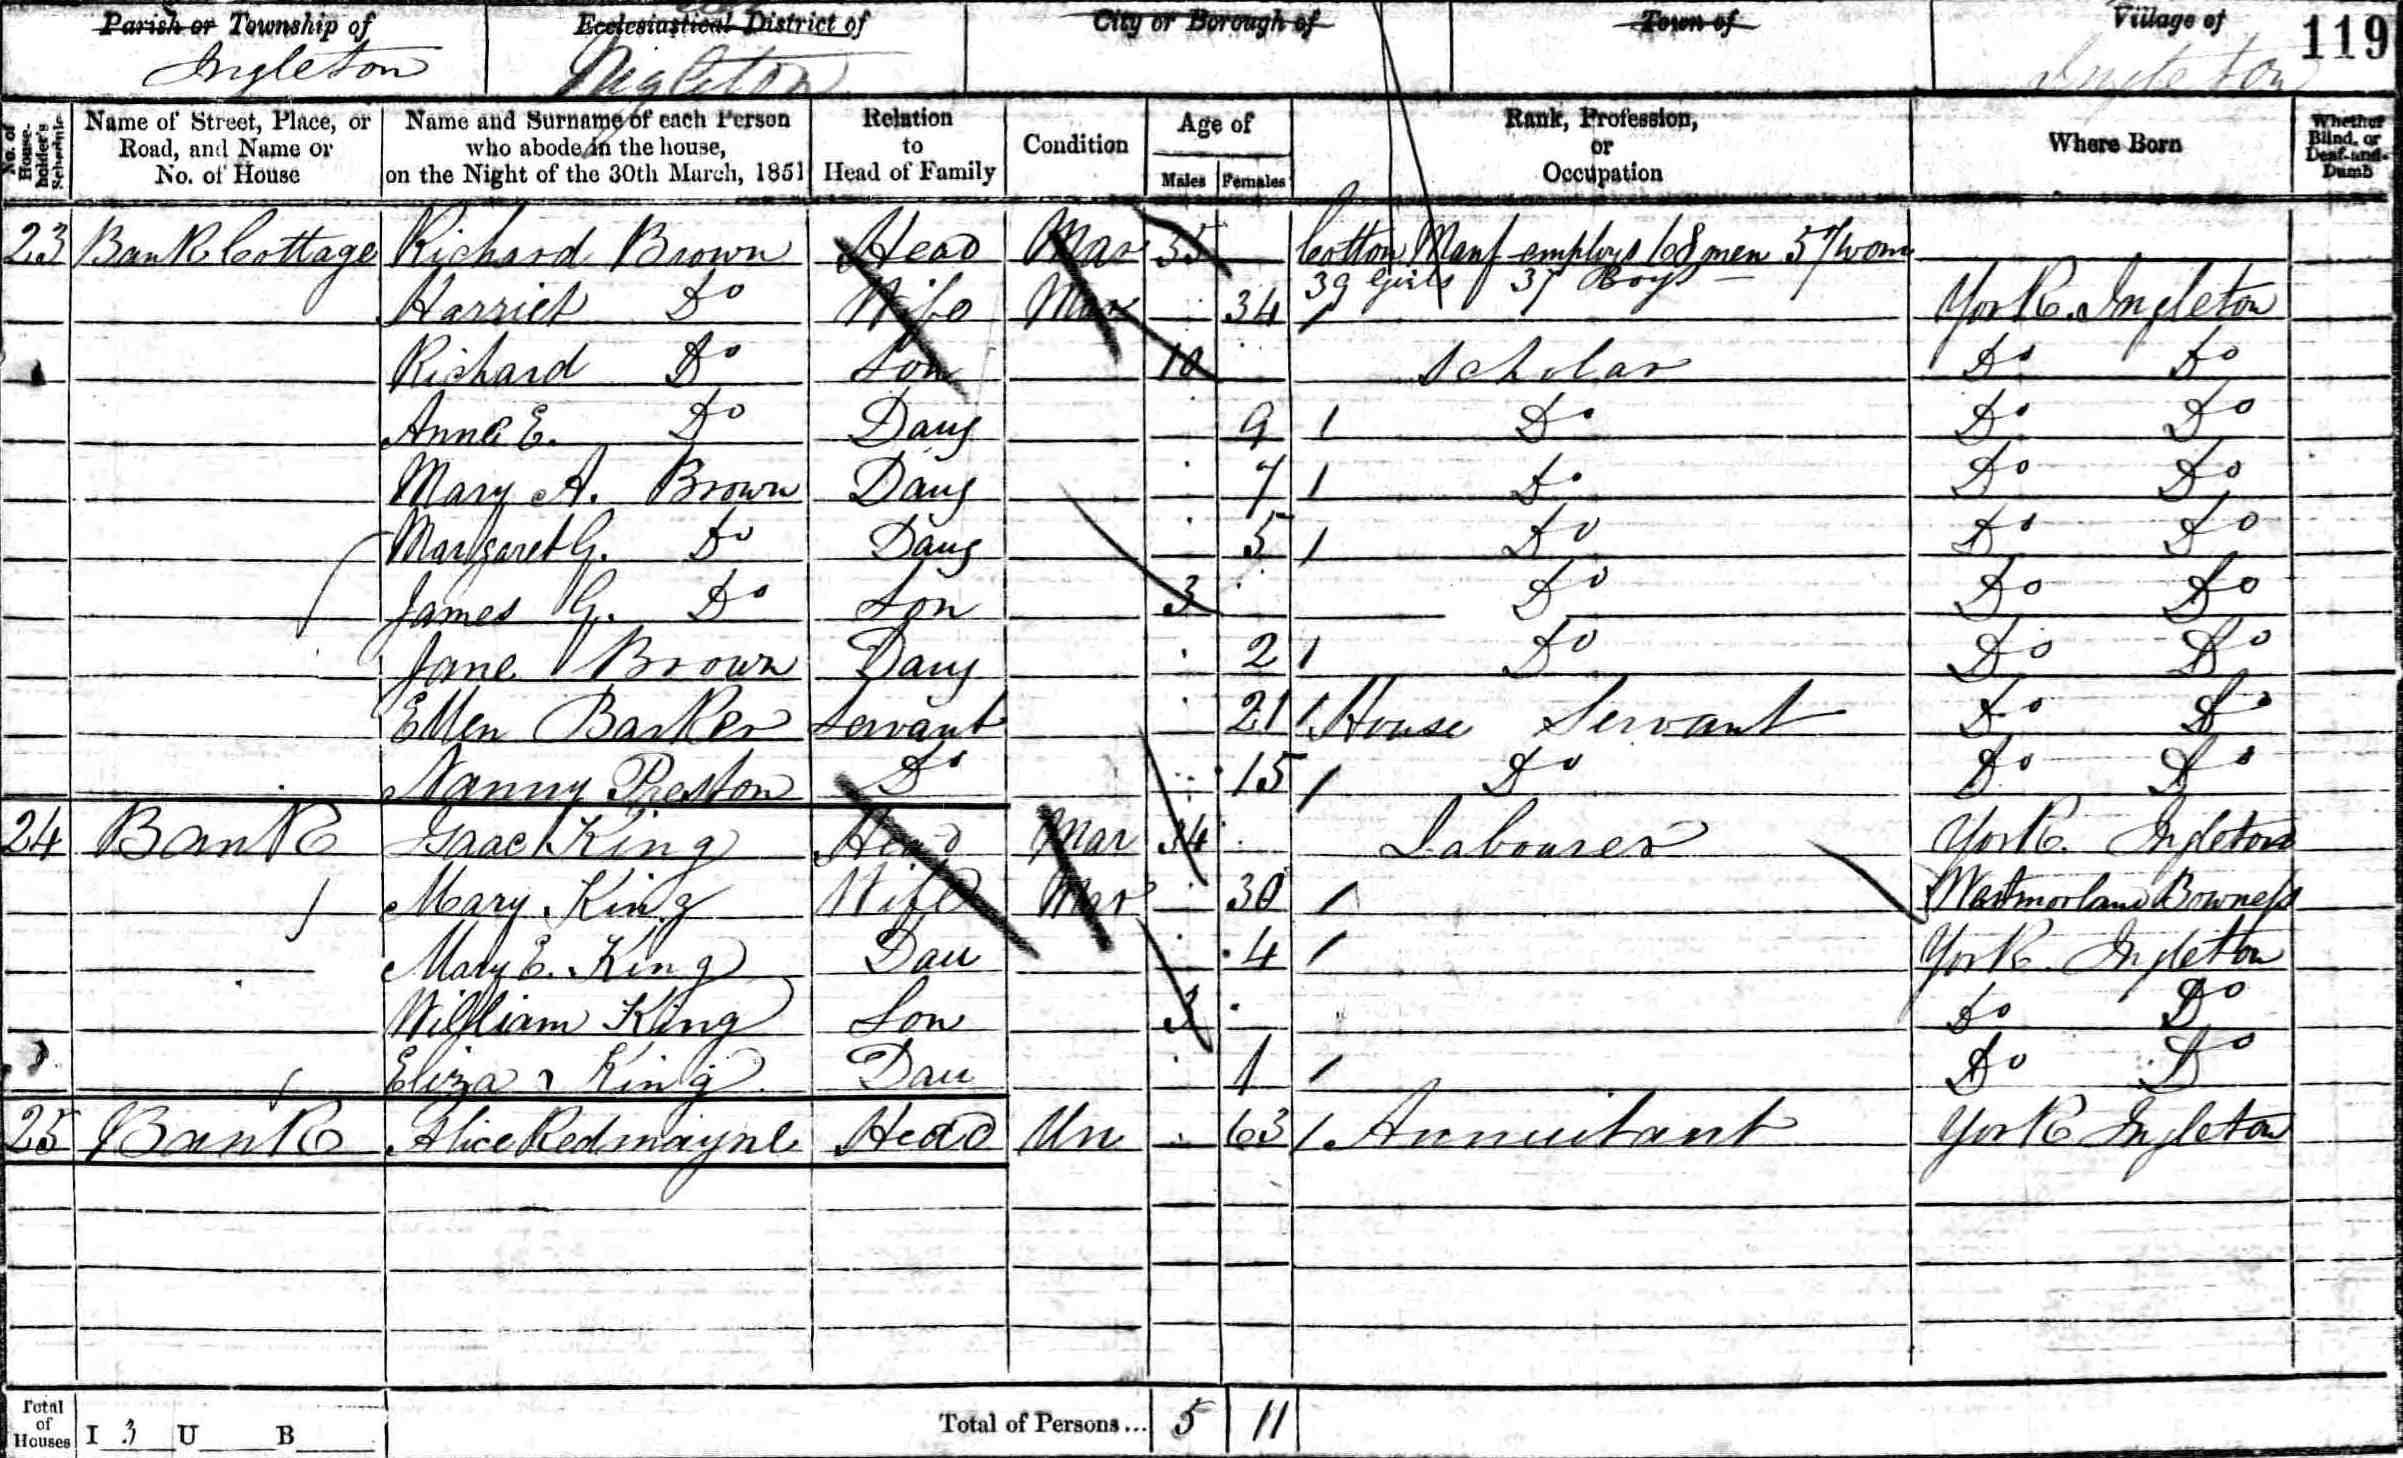 Parish or Township of Ecclesiastical District of City or Borough of Town of Village of 119
Ingleton Ingleton Ingleton
No. of Householder's Schedule Name of Street, Place, or Road, and Name or No. of House Name and Surname of each Person who abode in the house, on the Night of the 30th March, 1851 Relation to Head of Family Condition Age of Males Females Rank, Profession, or Occupation Where Born Whether Blind, or Deaf-and-Dumb
23 Bank Cottage Richard Brown Head Mar 35 Cotton Manf employs 68 men 57 wom
39 Girls 37 Boys
Harriet Do Wife Mar 34 York. Ingleton
Richard Do Son 10 Scholar Do Do
Anne E. Do Daug 9 Do Do Do
Mary A. Brown Daug 7 Do Do Do
Margaret G. Do Daug 5 Do Do Do
James G. Do Son 3 Do Do Do
Jane Brown Daug 2 Do Do Do
Ellen Barker Servant 21 House Servant Do Do
Nanny Preston Do 15 Do Do Do
24 Bank Isaac King Head Mar 34 Labourer York. Ingleton
Mary King Wife Mar 30 Westmorland Bowness
Mary E. King Dau 4 York Ingleton
William King Son 3 Do Do
Eliza King Dau 1 Do Do
25 Bank Alice Redmayne Head Un 63 Annuitant York Ingleton
Total of Houses I 3 U B Total of Persons... 5 11